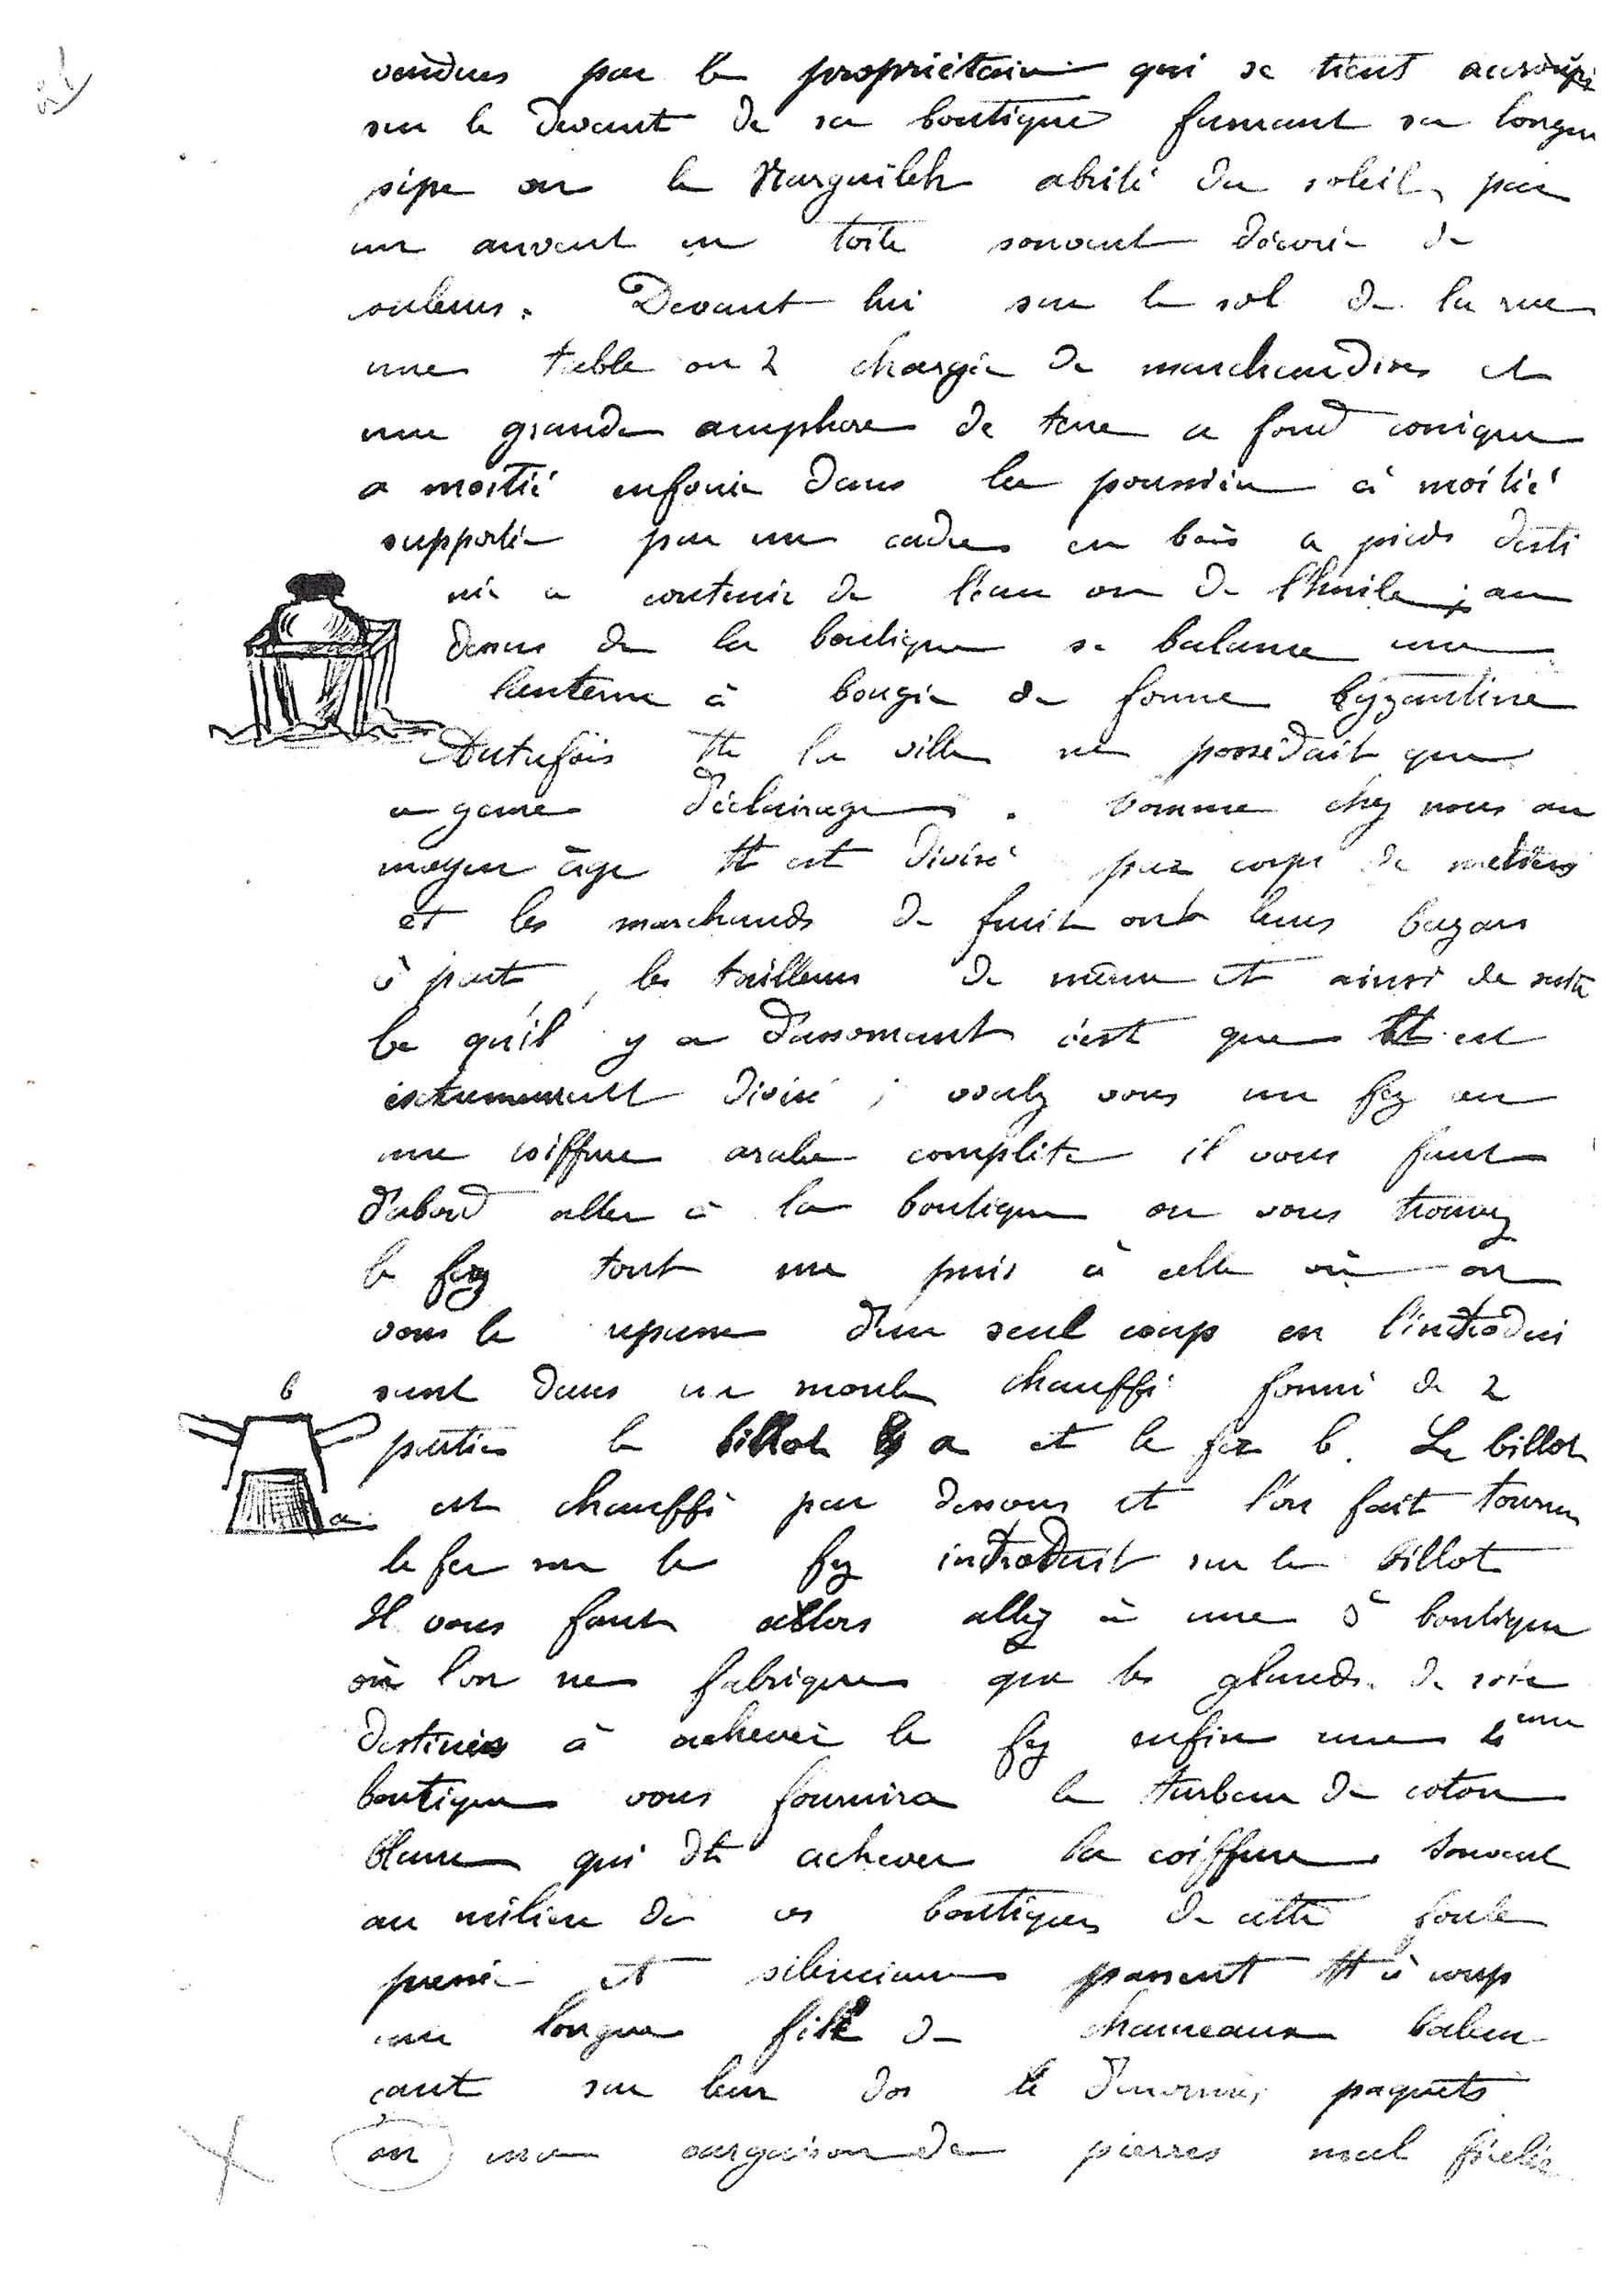 vendues par le propriétaire qui se tient accroupi
sur le devant de sa boutique fumant sa longue
pipe ou le Narguileh abrité du soleil par
un auvent en toile souvent décoré de
couleurs. Devant lui sur le sol de la rue
une table ou 2 chargée de marchandises et
une grande amphore de terre a fond conique
a moitié enfouie dans la poussière à moitié
supportée par un cadre en bois a pieds desti
née a contenir de l'eau ou de l'huile ; au
dessus de la boutique se balance une
lanterne à bougie de forme byzantine
Autrefois tte la ville ne possédait que
ce genre d'éclairage. Comme chez nous au
moyen âge tt est divisé par corps de metiers
et les marchands de fruit ont leurs bazars
à part, les tailleurs de même et ainsi de suite
Ce qu'il y a d'assomant c'est que tt est
extremement divisé ; voulez vous un fez ou
une coiffure arabe complète il vous faut
d'abord aller à la boutique ou vous trouvez
le fez tout nu puis à celle où on
vous le repasse d'un seul coup en l'introdui
sant dans un moule chauffé formé de 2
b
parties le billot a et le fer b. Le billot
est chauffé par dessous et l'on fait tourner
a
le fer sur le fez introduit sur le billot
Il vous faut alors allez à une 3e boutique
où l'on ne fabrique que les glands de soie
destinés à achever le fez enfin une 4eme
boutique vous fournira le turban de coton
blanc qui dt achever la coiffure. Souvent
au milieu de ces boutiques de cette foule
pressée et silencieuse passent tt à coup
une longue file de chameaux balan
cant sur leur dos d'enormes paquets
ou une cargaison de pierres mal ficelée